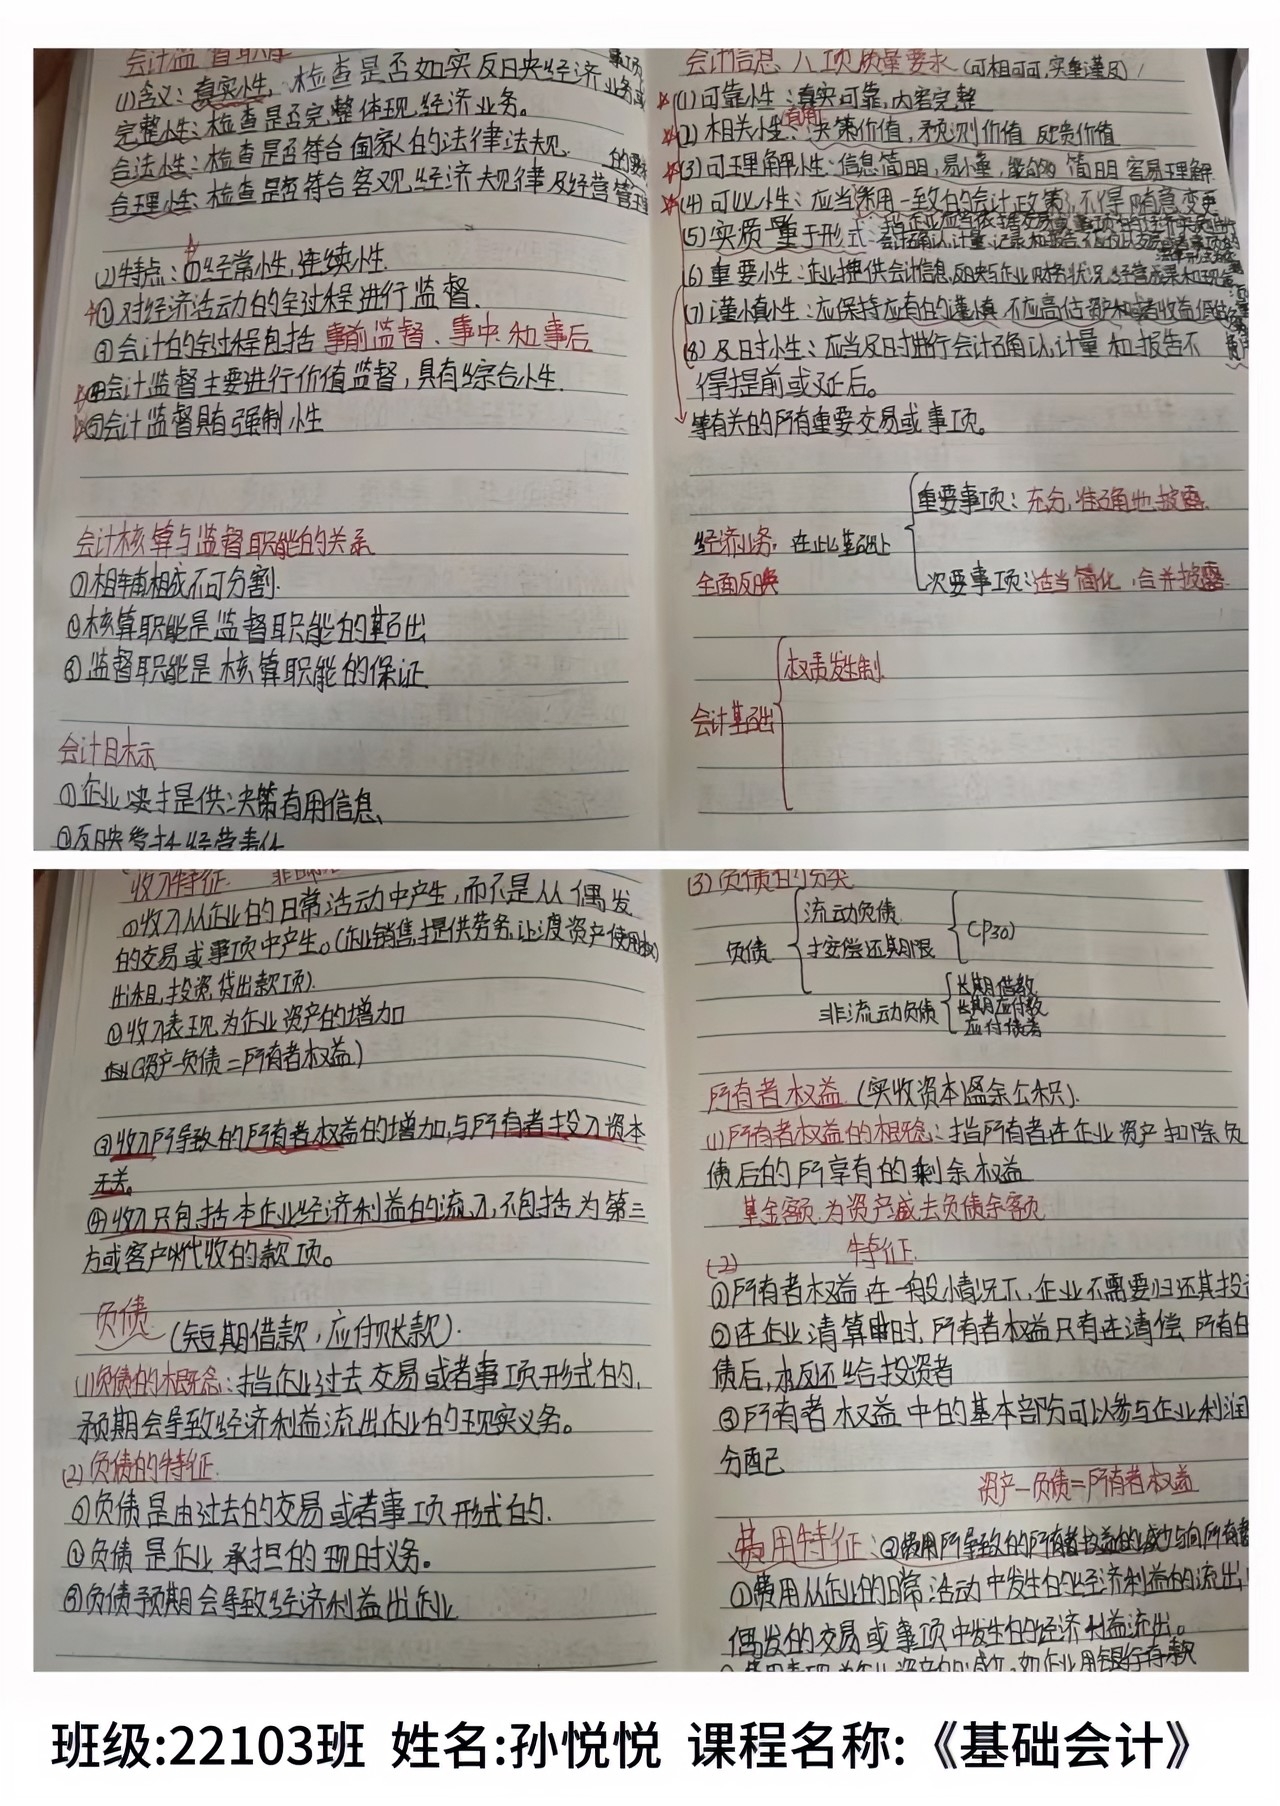 会计监督职能
(1)含义：真实性，检查是否如实反映经济业务或事项
完整性：检查是否完整体现经济业务。
合法性：检查是否符合国家的法律法规
合理性：检查是否符合客观经济规律及经营管理的要求
(2)特点：①经常性，连续性
②对经济活动的全过程进行监督.
③会计的全过程包括 事前监督、事中 和事后
④会计监督主要进行价值监督，具有综合性.
⑤会计监督具有强制性
会计核算与监督职能的关系
①相辅相成不可分割.
②核算职能是监督职能的基础
③监督职能是核算职能的保证
会计目标
①企业决提供决策有用信息、
②反映受托经营责任
会计信息八项质量要求 (可相可可,实重谨及)
(1)可靠性：真实可靠，内容完整
(2)相关性：有用 决策价值，预测价值 反馈价值
(3)可理解性：信息简明，易懂，能够 简明 容易理解
(4)可比性：应当采用一致的会计政策，不得随意变更
(5)实质重于形式：企业应当依据交易或事项的经济实质进行会计确认、计量、记录和报告
(6)重要性：企业提供会计信息反映与企业财务状况、经营成果和现金
(7)谨慎性：应保持应有的谨慎 不应高估资产或者收益 低估
(8)及时性：应当及时进行会计确认、计量 和报告不
得提前或延后。
等有关的所有重要交易或事项。
重要事项：充分，准确地披露
经济业务 在此基础上
全面反映
次要事项：适当简化，合并披露
权责发生制
会计基础
收入特征
①收入从企业的日常活动中产生，而不是从偶发
的交易或事项中产生。(企业销售，提供劳务，让渡资产使用权)
出租，投资，贷出款项).
②收入表现为企业资产的增加
(资产-负债=所有者权益)
③收入所导致的所有者权益的增加，与所有者投入资本
无关。
④收入只包括本企业经济利益的流入，不包括为第三
方或客户代收的款项。
负债 (短期借款，应付账款).
(1)负债的概念：指企业过去交易或者事项形式的，
预期会导致经济利益流出企业的现实义务。
(2)负债的特征
①负债是由过去的交易或者事项形式的.
②负债是企业承担的现时义务。
③负债预期会导致经济利益出企业
(3)负债的分类
流动负债
负债 按偿还期限 (P30)
非流动负债
长期借款
长期应付款
应付债券
所有者权益 (实收资本盈余公积).
(1)所有者权益的概念：指所有者在企业资产扣除负
债后的所享有的剩余权益
其金额为资产减去负债余额
(2) 特征
①所有者权益在一般情况下，企业不需要归还其投
②在企业清算时，所有者权益只有在清偿 所有的
债后，才返还给投资者
③所有者权益中的基本部分可以参与企业利润
分配
资产-负债=所有者权益
费用特征：③费用所导致的所有者权益的减少与向所有者
①费用从企业的日常活动中发生的经济利益的流出，
偶发的交易或事项中发生的经济利益流出。
②费用表现为企业资产的减少，如企业用银行存款
班级:22103班 姓名:孙悦悦 课程名称:《基础会计》